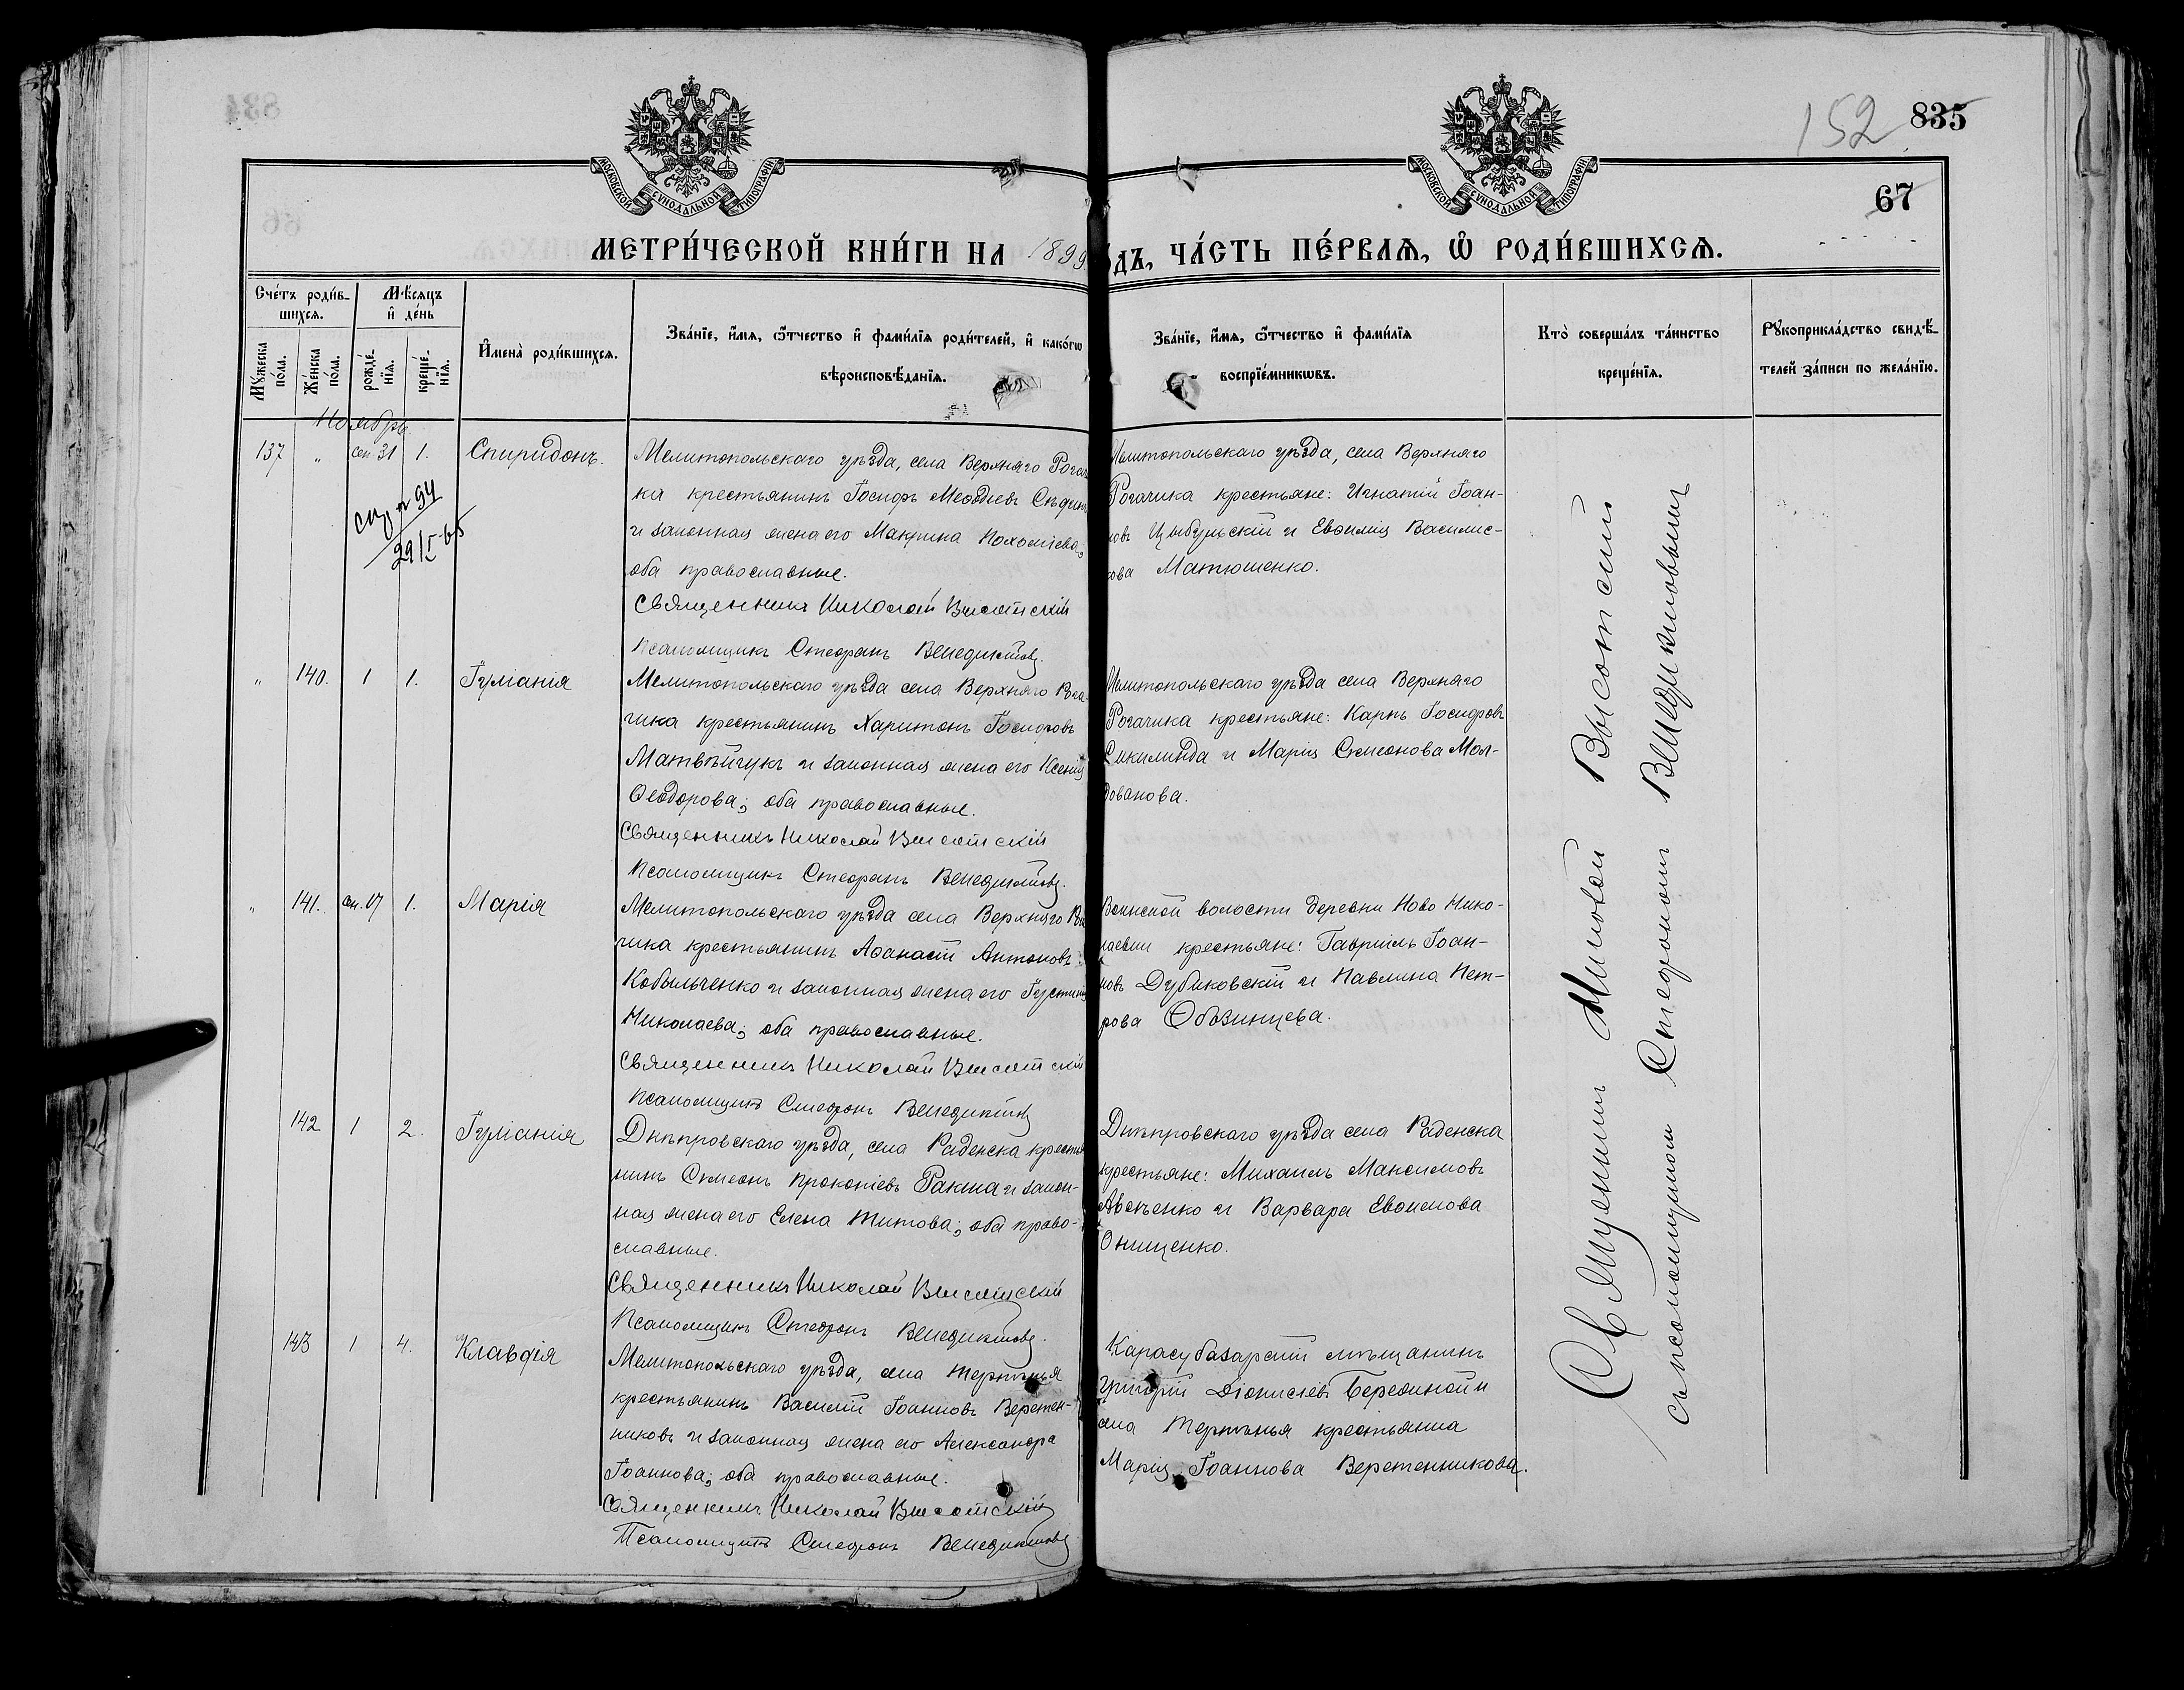 835
152
67
МОСКОВСКОЙ СѴНОДАЛЬНОЙ ТИПОГРАФІИ
МОСКОВСКОЙ СѴНОДАЛЬНОЙ ТИПОГРАФІИ
МЕТРИ́ЧЕСКОЙ КНИ́ГИ НА 1899
ДЪ, ЧА́СТЬ ПЕ́РВАЯ, Ѡ҆ РОДИ́ВШИХСЯ.
Сче́тъ роди́в-
шихся.
Мѣ́сяцъ
и҆ де́нь
Мꙋ́жеска
по́ла.
Же́нска
по́ла.
рожде́-
нїя.
креще́-
нїя.
И҆мена̀ роди́вшихся.
Зва́нїе, и҆́мя, ѻ҆́тчество и҆ фами́лїя роди́телей, и҆ како́гѡ
вѣроисповѣ́данїя.
Зва́нїе, и҆́мя, ѻ҆́тчество и҆ фами́лїя
воспрїе́мникѡвъ.
Кто̀ соверша́лъ та́инство
креще́нїя.
Рꙋкоприкла́дство свидѣ́-
телей за́писи по жела́нїю.
Ноябрь.
137 " 31 1. Спиридонъ.
94
Мелитопольскаго уѣзда, села Верхняго Рога
ка крестьянинъ Іосифъ Меѳодіевъ
и законная жена его Макрина Пахоміева;
оба православные.
Священникъ Николай Высотскій
Псаломщикъ Стефанъ Венедиктовъ.
Мелитопольскаго уѣзда, села Верхняго
Рогачика крестьяне: Игнатій Іоан-
новъ Цыбульскій и Евѳимія Василис-
кова Матюшенко.
" 140. 1 1. Іуліанія
Мелитопольскаго уѣзда села Верхняго Рога-
чика крестьянинъ Харитонъ Іосифовъ
Матвѣйчукъ и законная жена его Ксенія
Ѳеодорова; оба православные.
Священникъ Николай Высотскій
Псаломщикъ Стефанъ Венедиктовъ.
Мелитопольскаго уѣзда села Верхняго
Рогачика крестьяне: Карпъ Іосифовъ
и Марія Симеонова Мол-
дованова.
" 141. 1. Марія
Мелитопольскаго уѣзда села Верхняго
чика крестьянинъ Аѳанасій Антоновъ
Кобыльченко и законная жена его Іустинія
Николаева; оба православные.
Священникъ Николай Высотскій
Псаломщикъ Стефанъ Венедиктовъ
волости деревни Ново Нико-
лаевки крестьяне: Гавріилъ Іоан-
новъ Дубиковскій и Павлина Пет-
рова
142 1 2. Іуліанія
Днѣпровскаго уѣзда, села Раденска крестья
нинъ Симеонъ Прокопіевъ Ракша и закон-
ная жена его Елена Титова; оба право-
славные.
Священникъ Николай Высотскій
Псаломщикъ Стефанъ Венедиктовъ.
Днѣпровскаго уѣзда села Раденска
крестьяне: Михаилъ Максимовъ
и Варвара Евѳимова
Онищенко.
143 1 4. Клавдія
Мелитопольскаго уѣзда, села Терпѣнья
крестьянинъ Василій Іоанновъ Веретен-
никовъ и законная жена его Александра
Іоаннова; оба православные.
Священникъ Николай Высотскій
Псаломщикъ Стефанъ Венедиктовъ
Карасубазарскій мѣщанинъ
Григорій Діонисіевъ и
села Терпѣнья крестьянка
Марія Іоаннова Веретенникова.
Священникъ Николай Высотскій
съ псаломщикомъ Стефаномъ Венедиктовымъ